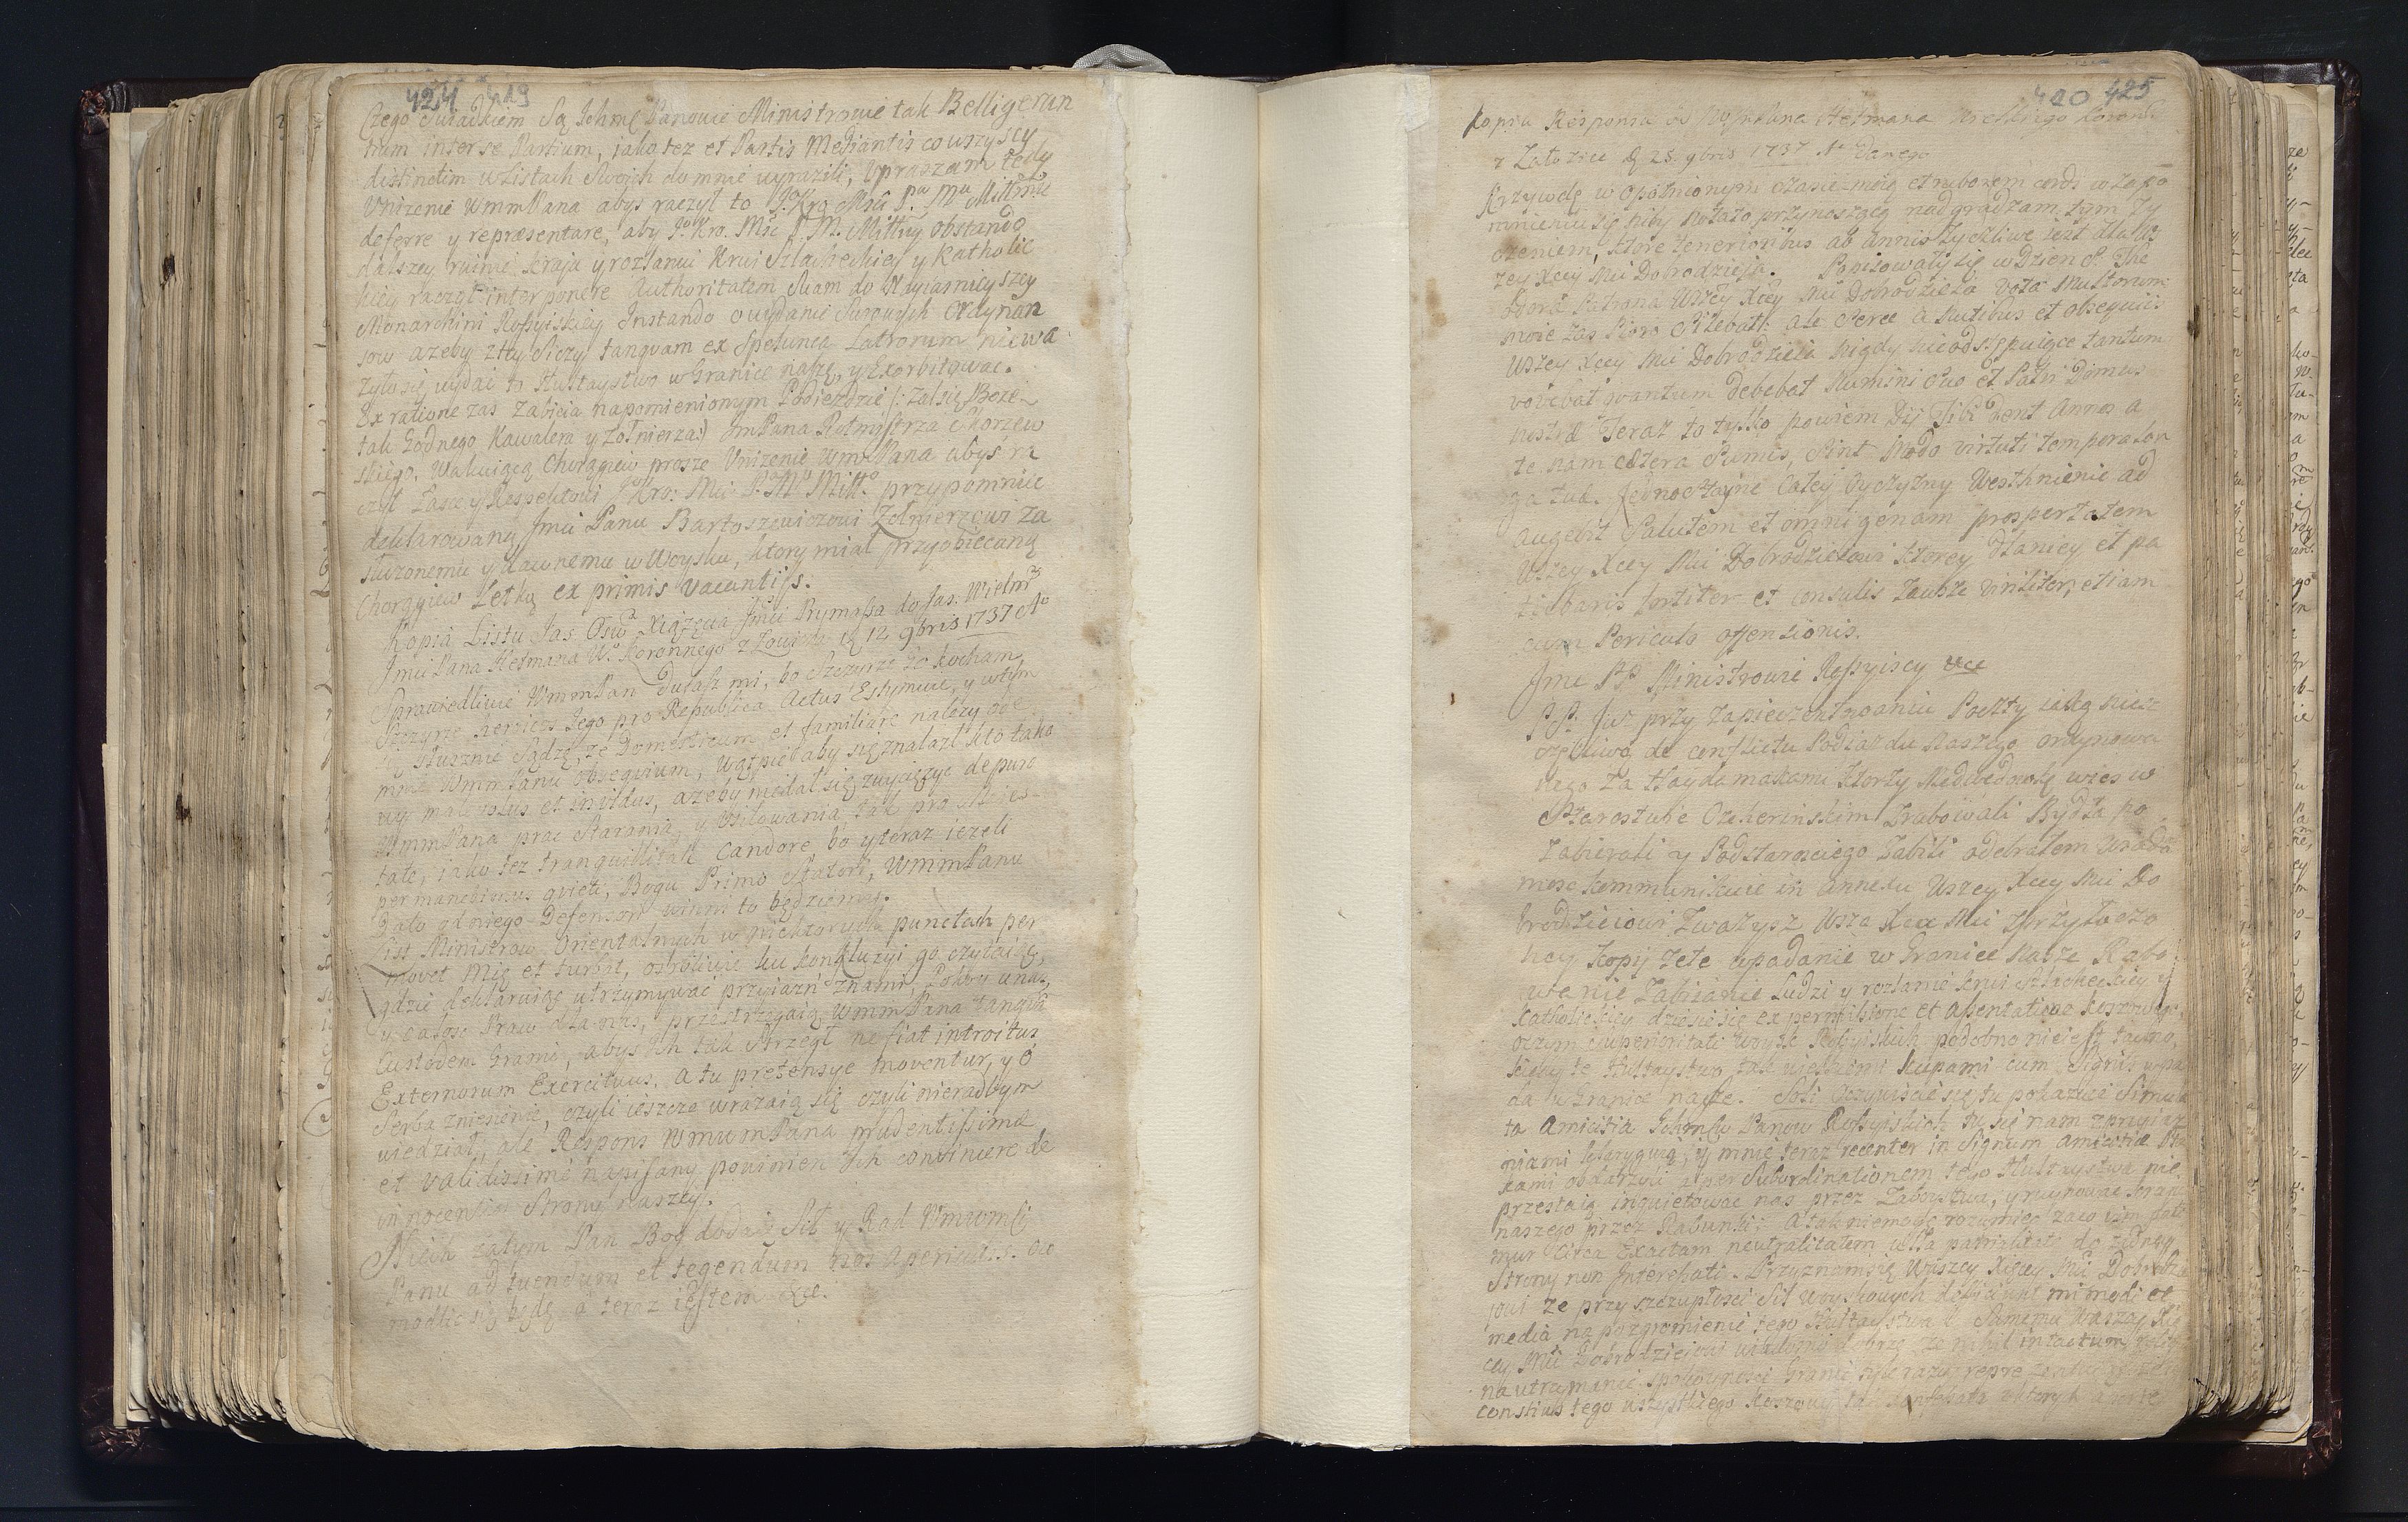 424 419
Czego Swiadkiem Są Ichmć Panowie Ministrowie tak Belligeran
tium inter se Partium, jako tez et Partis Mediantis co wszyscy
distinctim w Listach Swojch do mnie wyrazili, Vpraszam tedy
Vnizenie WmmPana abys raczył to J. Kro Msći P. Mu Miłłmu
deferre y repræsentare, aby J. Kro. Mść P. M. Miłłwy obstando
dalszey ruinie kraju y rozlaniu Krwi Szlacheckiey y Katholic
kiey raczył interponere Authoritatem Suam do Nayiasnieyszey
Monarchini Rossyiskiey Instando o wydanie Surowych Ordynan
sow azeby z tey Siczy tanquam ex Spelunca Latronum niewa
zyło się wydac to Hultaystwo w Granice nasze, y Exorbitowac.
Ex ratione zas Zabicia na pomienionym Podieżdzie /: Zal się Boze
tak Godnego Kawalera y Zołnierza:/ JmPana Rotmistrza Chorzew
skiego. Wakuiącą Chorągiew prosze Vnizenie WmmPana abys ra
czył Łasce y Respektowi J Kro: Msci P. M. Miłł: przypomniec
deklarowaną Jmci Panu Bartoszewiczowi Zołnierzowi za
słuzonemu y dawnemu w Woysku, ktory miał przyobiecaną
Chorągiew Letką ex primis Vacantijs.
Kopia Listu Jas. Osw. Xiązęcia Jmci Prymassa do Jas: Wielm
Jmci Pana Hetmana W. Koronnego z Łowicza d. 12 9bris 1737 Ao
Sprawiedliwie WmmPan dufasz mi, bo Szczyrze Go kocham
Szczyrze heroicos Jego pro Republica Actus Estymuie, y w tym
Słusznie Sądzę, ze Domesticum et familiare nalezy ode
mnie WmmPanu obsequium, wątpię aby się znalazł kto tako
wy malevolus et invidus, azeby niedał się zwyciężyc de pura
WmmPana prac Starania y Vsiłowania, tak pro Maies-
tate, iako tez tranquillitate Candore bo y teraz iezeli
permanebimus quieti, Bogu Primo Statori, WmmPanu
Dato od niego Defensori winni to będziemy.
List Ministrow Orientalnych w niektorych punctach per
movet mię et turbat, osobliwie ku konkluzyi go czytaiąc,
gdzie deklaruiąc utrzymywac przyiazń z nami, Pokoy u nas,
y całosc Praw dla nas, przestrzegaią WmmPana tanquam
Custodem Granic, abys Jch tak Strzegł ne fiat introitus
Externorum Exercituus. A tu pretensye moventur, y o
Serba zniesienie, czyli ieszcze wrazaią się czyli nieradbym
wiedział, ale Respons WmmmPana prudentissime
et validissime napisany powinien Jch convincere de
innocentia Strony naszey.
Niech zatym Pan Bog dodaie Sił y Rad Wmmmci
Panu ad tuendum et tegendum nos a periculis. oco
modlic się będę a teraz iestem &ce.
420 425
Kopia Responsu od JasnieWielm Pana Hetmana Wielkiego Koronn
z Załozice d. 25. 9bris 1737 Ao Danego
Krzywdę w opoznionym czasie moię et ruborem cordi w zapo
mnieniu się niby notato przynoszącą nadgradzam tym Zy
czeniem, ktore tenerioribus ab annis Zyczliwe iest dla W
szey Xcey Mci Dobrodzieja. Popisowały się w Dzien S. The
odora Patrona Wszey Xcey Mci Dobrodzieja Vota Multorum
moie zas Pioro Silebat: ale Serce a nutibus et obsequiis
Wszey Xcey Mci Dobrodzieia nigdy nieodstępuiące tantum
vovebat quantum debebat Numini Suo et Patri Domus
nostræ Teraz to tylko powiem Dij Tibi dent Annos a
te nam cætera Sumis, Sint modo virtuti tempora lon
ga tuæ. Jednostayne Całey Oyczyzny Westhnienie ad
augebit Salutem et omnigenam prosperitatem
Wszey Xcey Mci Dobrodzieiowi ktorey Staniey et pa
trocinaris fortiter et consulis Zawsze viriliter, etiam
cum Periculo offensionis.
Jme PP Ministrowie Rossyiscy &ce
P.P. Juz przy zapieczentowaniu Poczty iakę niesz
częsliwą de conflictu Podiazdu Naszego ordynowa
nego Za Haydamakami ktorzy Medwedowkę wies w
Starostwie Czeherinskim Zrabowali Bydła po
zabierali y Podstarosciego Zabili odebrałem wiado
mosc kommunikuie in annexu Wszey Xcey Mci Do
brodzieiowi Zwazysz Wsza Xca Mci z przyłączo
ney kopij ze te wpadanie w Granice nasze Rabo
wanie Zabiianie Ludzi y rozlanie krwi Szlacheckiey y
Katholickiey dzieie się ex permissione et assentatione Koszowego,
o czym Superioritati Woysk Rossyiskich podobno nieiest tayno,
kiedy te Hultaystwo tak wielkiemi kupami cum Signis wpa
da w Granice nasze. Soli oczywiscie się tu pokazuie Simula
ta Amicitia Ichmciow Panow Rossyiskich tu się nam z przyiaz
niami koligruią, y mnie teraz recenter in Signum amicitiæ
kami obdarzyli a per Subordinationem tego Hultaystwa nie
przestaią inquietowac nas przez Zaboystwa, y ruynowac Kraiu
naszego przez Rabunki: A tak niemogę rozumiec za co
mur circa Exactam neutralitatem ulla patrialitate do zadney
Strony non Interessati. Przyznam się Waszey Xięcey Mci Dobrodzie
iowi ze przy szczupłosci Sił Woyskowych deficiunt mi modi et
media na pozgromienie tego Hultaystwa Samemu Waszey Xię
cey Mci Dobrodzieiowi wiadomo dobrze ze nihil intactum
na utrzymanie spokoynosci Granic
conscius tego wszystkiego Koszowy